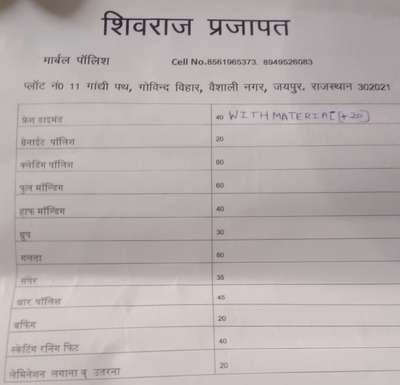 शिवराज प्रजापत
मार्बल पॉलिश Cell No.8561965373. 8949526083
प्लॉट नं0 11 गांधी पथ, गोविन्द विहार, वैशाली नगर, जयपुर. राजस्थान 302021
फ्रेश डाइमंड 40 WITH MATERIAL [+20]
ग्रेनाईट पॉलिश 20
क्लेडिंग पॉलिश 80
फुल मॉल्डिंग 60
हाफ मॉल्डिंग 40
ग्रुप 30
गलता 60
नपेर 35
धार पॉलिश 45
बफिंग 20
स्केटिंग रनिंग फिट 40
लेमिनेशन लगाना व् उतरना 20